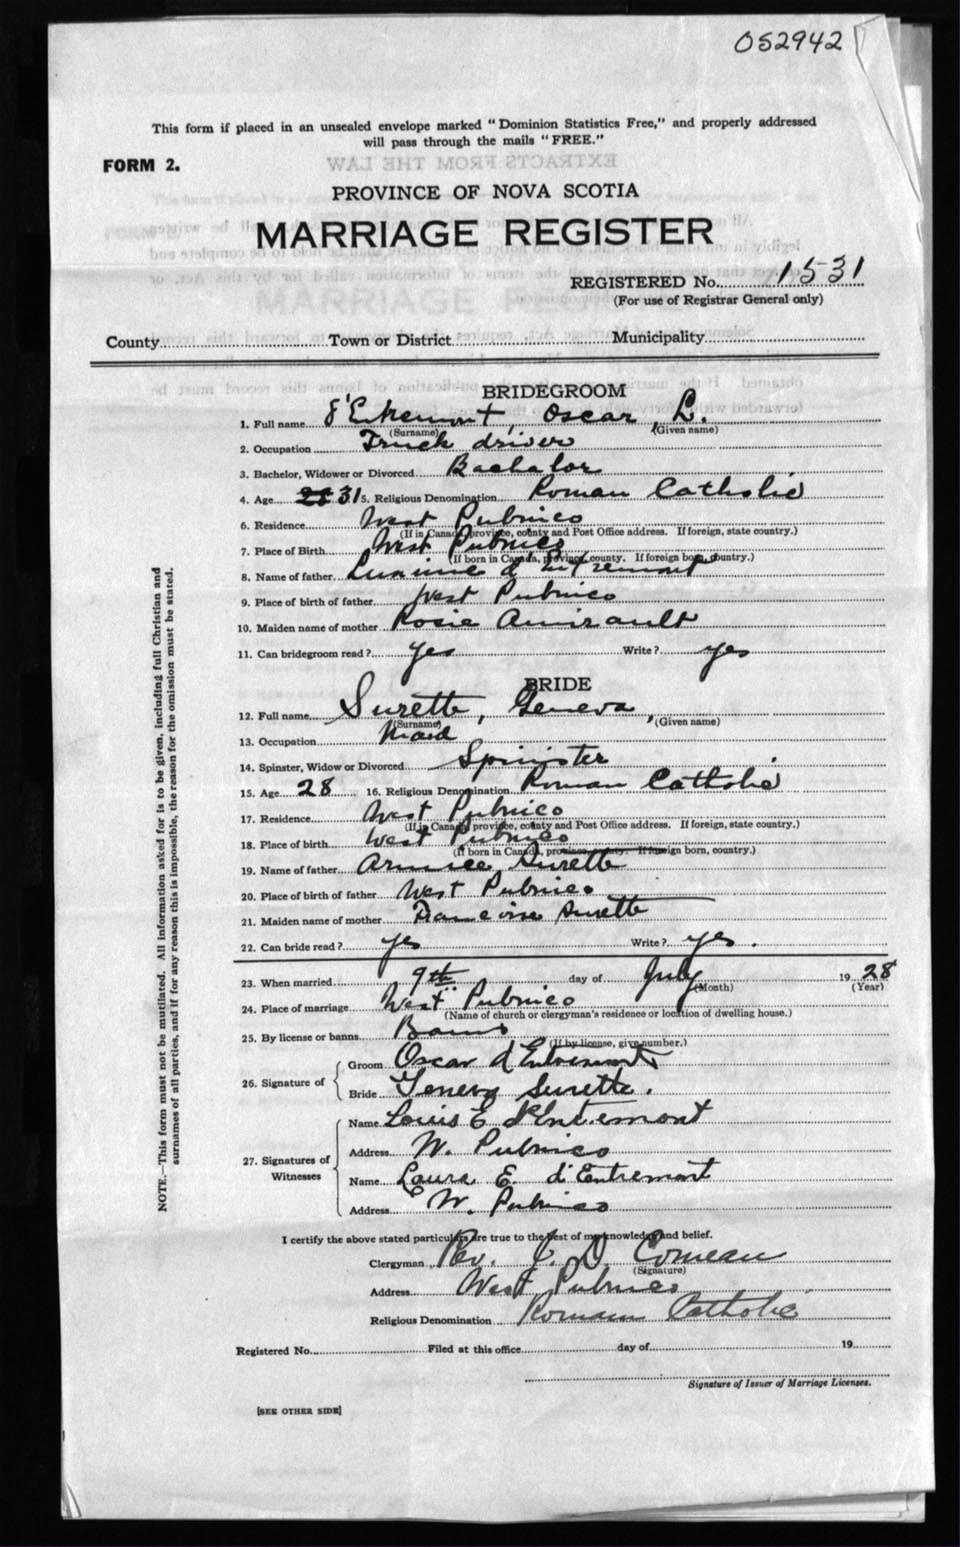 052942
This form if placed in an unsealed envelope marked "Dominion Statistics Free," and properly addressed
will pass through the mails "FREE."
FORM 2.
EXTRACTS FROM THE LAW
PROVINCE OF NOVA SCOTIA
MARRIAGE REGISTER
REGISTERED No. 1531
(For use of Registrar General only)
County Town or District Municipality
BRIDEGROOM
1. Full name d'Entremont, Oscar L.
(Surname) (Given name)
2. Occupation Truck driver
3. Bachelor, Widower or Divorced Bachelor
4. Age 31 5. Religious Denomination Roman Catholic
6. Residence West Pubnico
(If in Canada, province, county and Post Office address. If foreign, state country.)
7. Place of Birth West Pubnico
(If born in Canada, province, county. If foreign born, country.)
8. Name of father d'Entremont
9. Place of birth of father West Pubnico
10. Maiden name of mother Rosie Amirault
11. Can bridegroom read? yes Write? yes
BRIDE
12. Full name Surette, Geneva,
(Surname) (Given name)
13. Occupation Maid
14. Spinster, Widow or Divorced Spinister
15. Age 28 16. Religious Denomination Roman Catholic
17. Residence West Pubnico
(If in Canada, province, county and Post Office address. If foreign, state country.)
18. Place of birth West Pubnico
(If born in Canada, province, county. If foreign born, country.)
19. Name of father Surette
20. Place of birth of father West Pubnico
21. Maiden name of mother Surette
22. Can bride read? yes Write? yes.
23. When married 9th day of July 1928
(Month) (Year)
24. Place of marriage West Pubnico
(Name of church or clergyman's residence or location of dwelling house.)
25. By license or banns Banns
(If by license, give number.)
26. Signature of
Groom Oscar d'Entremont
Bride Geneva Surette.
27. Signatures of Witnesses
Name Louis E. d'Entremont
Address W. Pubnico
Name Laura E. d'Entremont
Address W. Pubnico
I certify the above stated particulars are true to the best of my knowledge and belief.
Clergyman Rev. J. D. Comeau
(Signature)
Address West Pubnico
Religious Denomination Roman Catholic
Registered No. Filed at this office day of 19
Signature of Issuer of Marriage Licenses.
[SEE OTHER SIDE]
NOTE.—This form must not be mutilated. All information asked for is to be given, including full Christian and
surnames of all parties, and if for any reason this is impossible, the reason for the omission must be stated.